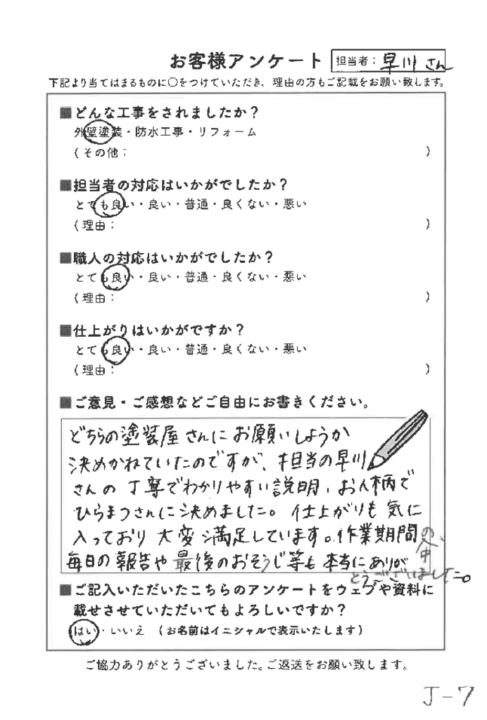 お客様アンケート
担当者： 早川 さん
下記より当てはまるものに○をつけていただき、理由の方もご記載をお願い致します。
■どんな工事をされましたか？
外壁塗装・防水工事・リフォーム
（その他： ）
■担当者の対応はいかがでしたか？
とても良い・良い・普通・良くない・悪い
（理由： ）
■職人の対応はいかがでしたか？
とても良い・良い・普通・良くない・悪い
（理由： ）
■仕上がりはいかがですか？
とても良い・良い・普通・良くない・悪い
（理由： ）
■ご意見・ご感想などご自由にお書きください。
どちらの塗装屋さんにお願いしようか
決めかねていたのですが、担当の早川
さんの丁寧でわかりやすい説明、お人柄で
ひらまつさんに決めました。仕上がりも気に
入っており大変満足しています。作業期間の中、
毎日の報告や最後のおそうじ等も本当にありが
とうございました。
■ご記入いただいたこちらのアンケートをウェブや資料に
載せさせていただいてもよろしいですか？
はい・いいえ （お名前はイニシャルで表示いたします）
ご協力ありがとうございました。ご返送をお願い致します。
J-7